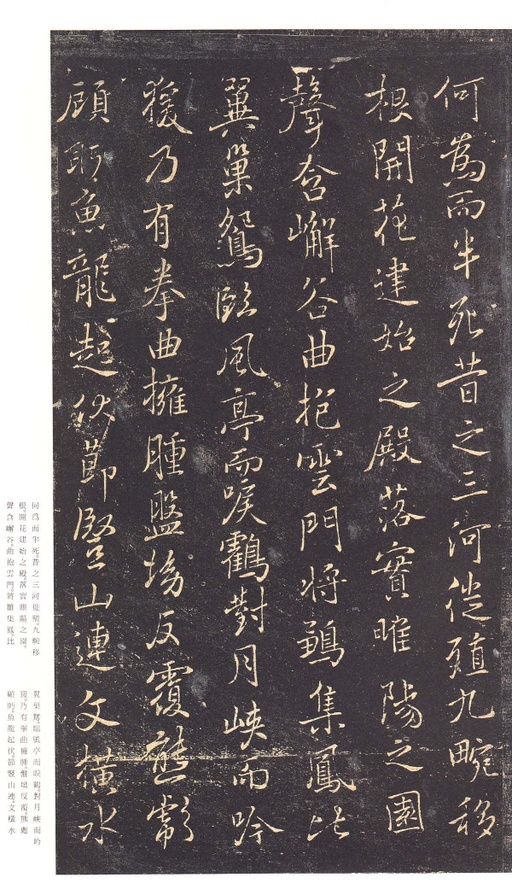 何為而半死昔之三河徙殖九畹移
根開花建始之殿落實睢陽之園
聲含嶰谷曲抱雲門將鶵集鳳比
翼巢鴛臨風亭而唳鶴對月峽而吟
猨乃有拳曲擁腫盤坳反覆熊彪
顧眄魚龍起伏節豎山連文橫水
何爲而半死昔之三河徙殖九畹移
根開花建始之殿落實睢陽之園
聲含嶰谷曲抱雲門將雛集鳳比
翼巢鴛臨風亭而唳鶴對月峽而吟
猨乃有拳曲擁腫盤坳反覆熊彪
顧眄魚龍起伏節豎山連文橫水